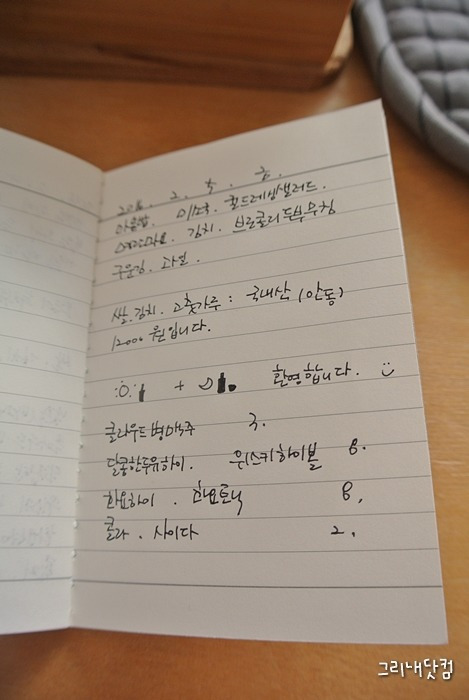 2016. 2. 5. 금.
마음밥. 미소국. 콜드레싱샐러드.
김치. 브로콜리두부무침
구운김. 과일.
쌀. 김치. 고춧가루 : 국내산 (안동)
12000 원입니다.
+ 환영합니다.
클라우드병맥주 3.
달콤한두유하이. 위스키하이볼 8.
화요하이. 화요토닉 8.
콜라. 사이다 2.
그리내닷컴